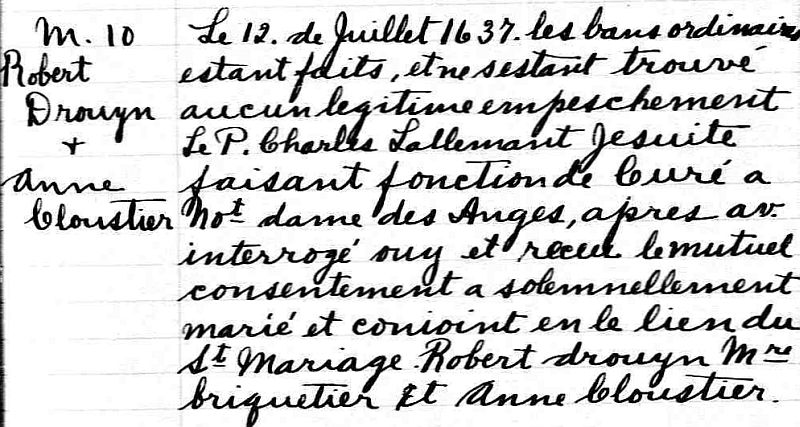 M. 10
Robert
Drouyn
+
Anne
Cloustier
Le 12. de Juillet 1637. les bans ordinaires
estant faits, et ne sestant trouvé
aucun legitime empeschement
Le P. Charles Lallemant Jesuite
faisant fonction de Curé a
Not dame des Anges, apres av.
interrogé ouy et receu le mutuel
consentement a solemnellement
marié et conioint en le lien du
St Mariage Robert drouyn Mre
briquetier Et Anne Cloustier.